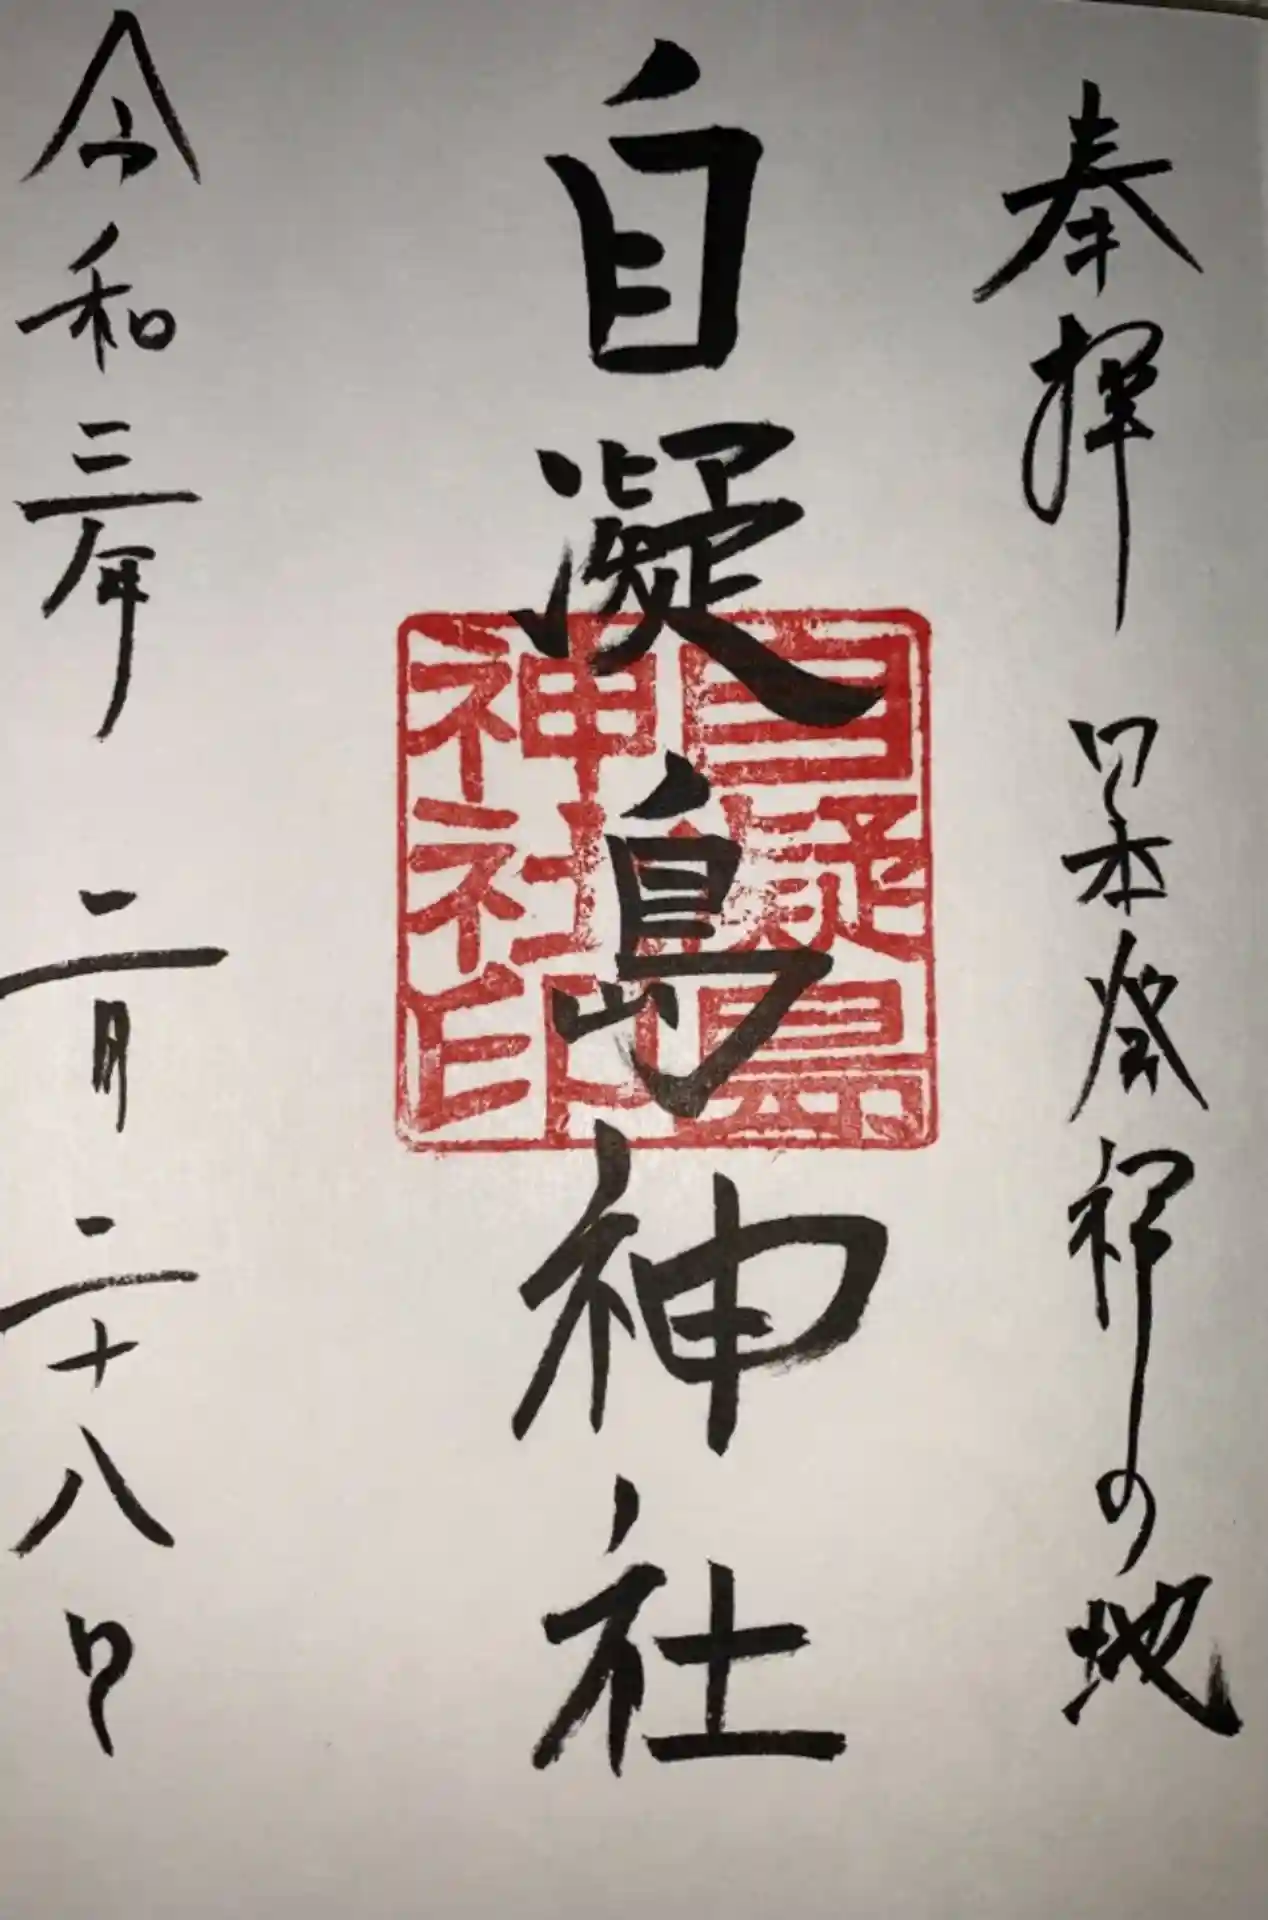 奉拝 日本発祥の地
自凝島神社
自凝島
神社印
令和三年 二月 二十八日